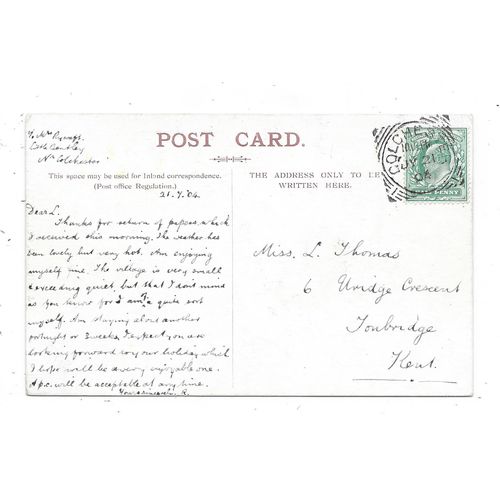 c/o Mrs Rycroft
Little Bentley
Nr Colchester
POST CARD.
This space may be used for Inland correspondence.
(Post office Regulation.)
THE ADDRESS ONLY TO BE
WRITTEN HERE.
COLCHESTER
JY 21
04
PENNY
21.7.04
Dear L.
Thanks for return of papers, which
I received this morning. The weather has
been lovely but very hot. Am enjoying
myself fine. The village is very small
& exceeding quiet, but that I don't mind
as you know for I am a quiet sort
myself. Am staying about another
fortnight or 3 weeks. I expect you are
looking forward to your holiday which
I hope will be a very enjoyable one.
A p.c. will be acceptable at any time.
Yours sincerely R.
Miss. L. Thomas
6 Uridge Crescent
Tonbridge
Kent.